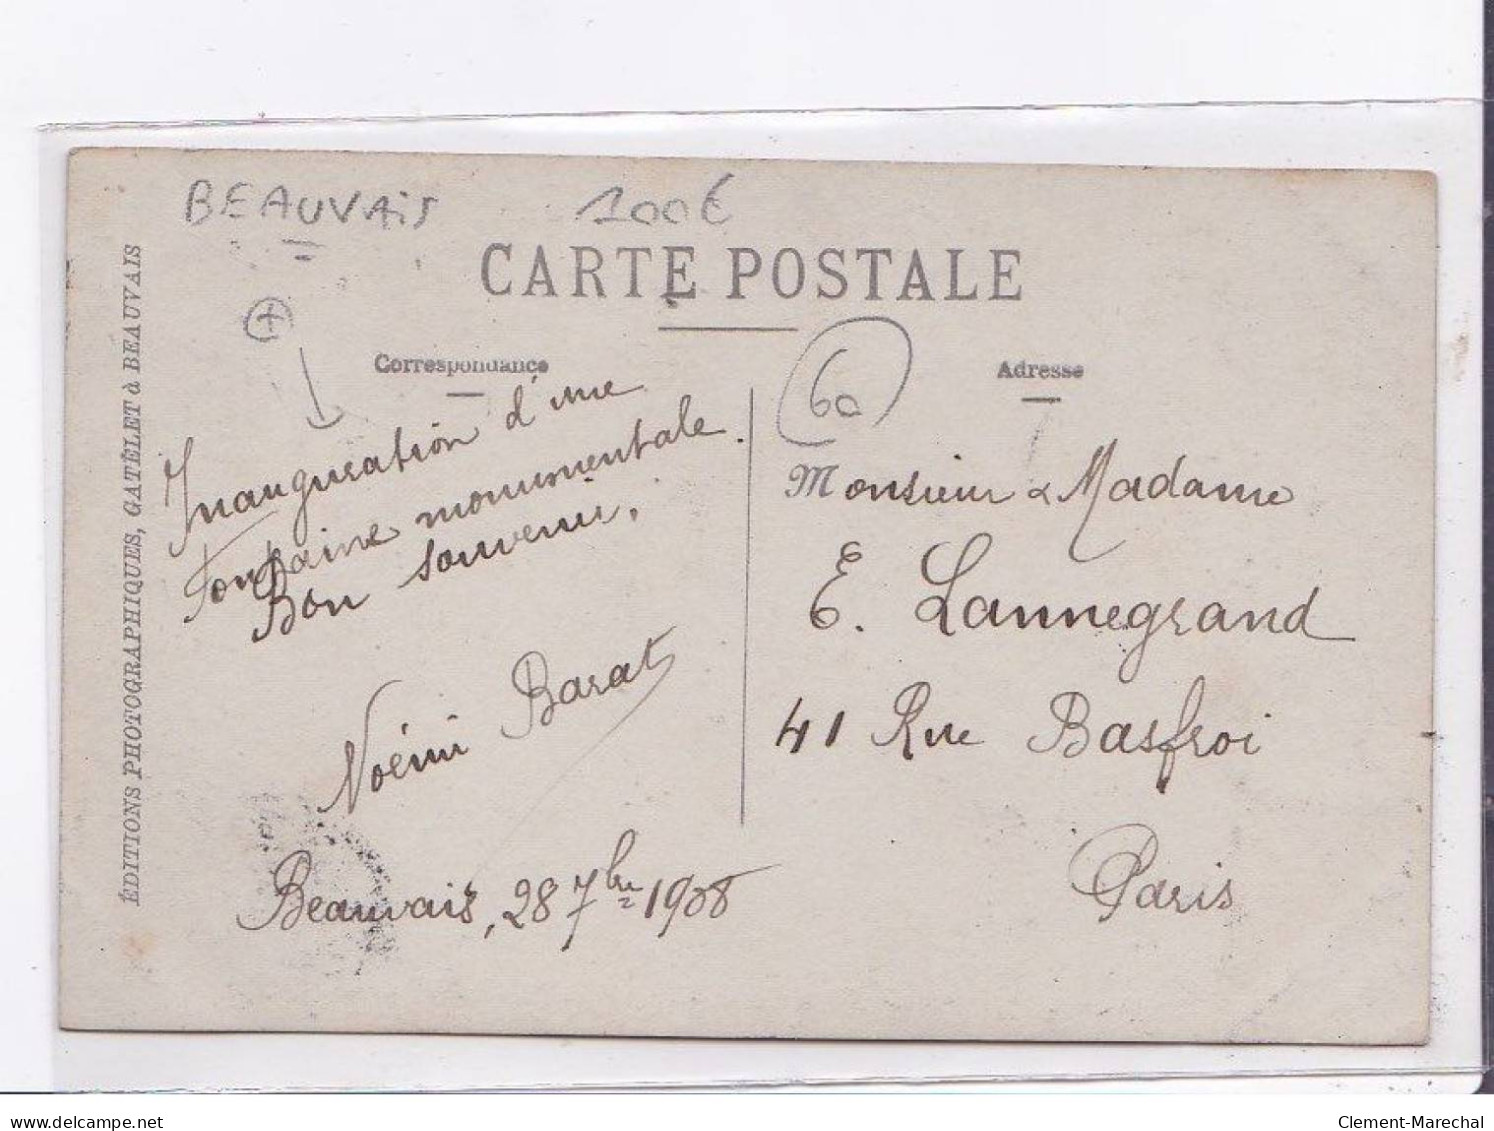 BEAUVAIS
100€
CARTE POSTALE
ÉDITIONS PHOTOGRAPHIQUES, GATÊLET à BEAUVAIS
+
Correspondance
Inauguration d'une
Fontaine monumentale.
Bon souvenir.
Noémi Barat
Beauvais, 28 7bre 1908
60
Adresse
Monsieur & Madame
E. Lannegrand
41 Rue Basfroi
Paris
www.delcampe.net
Clement-Marechal